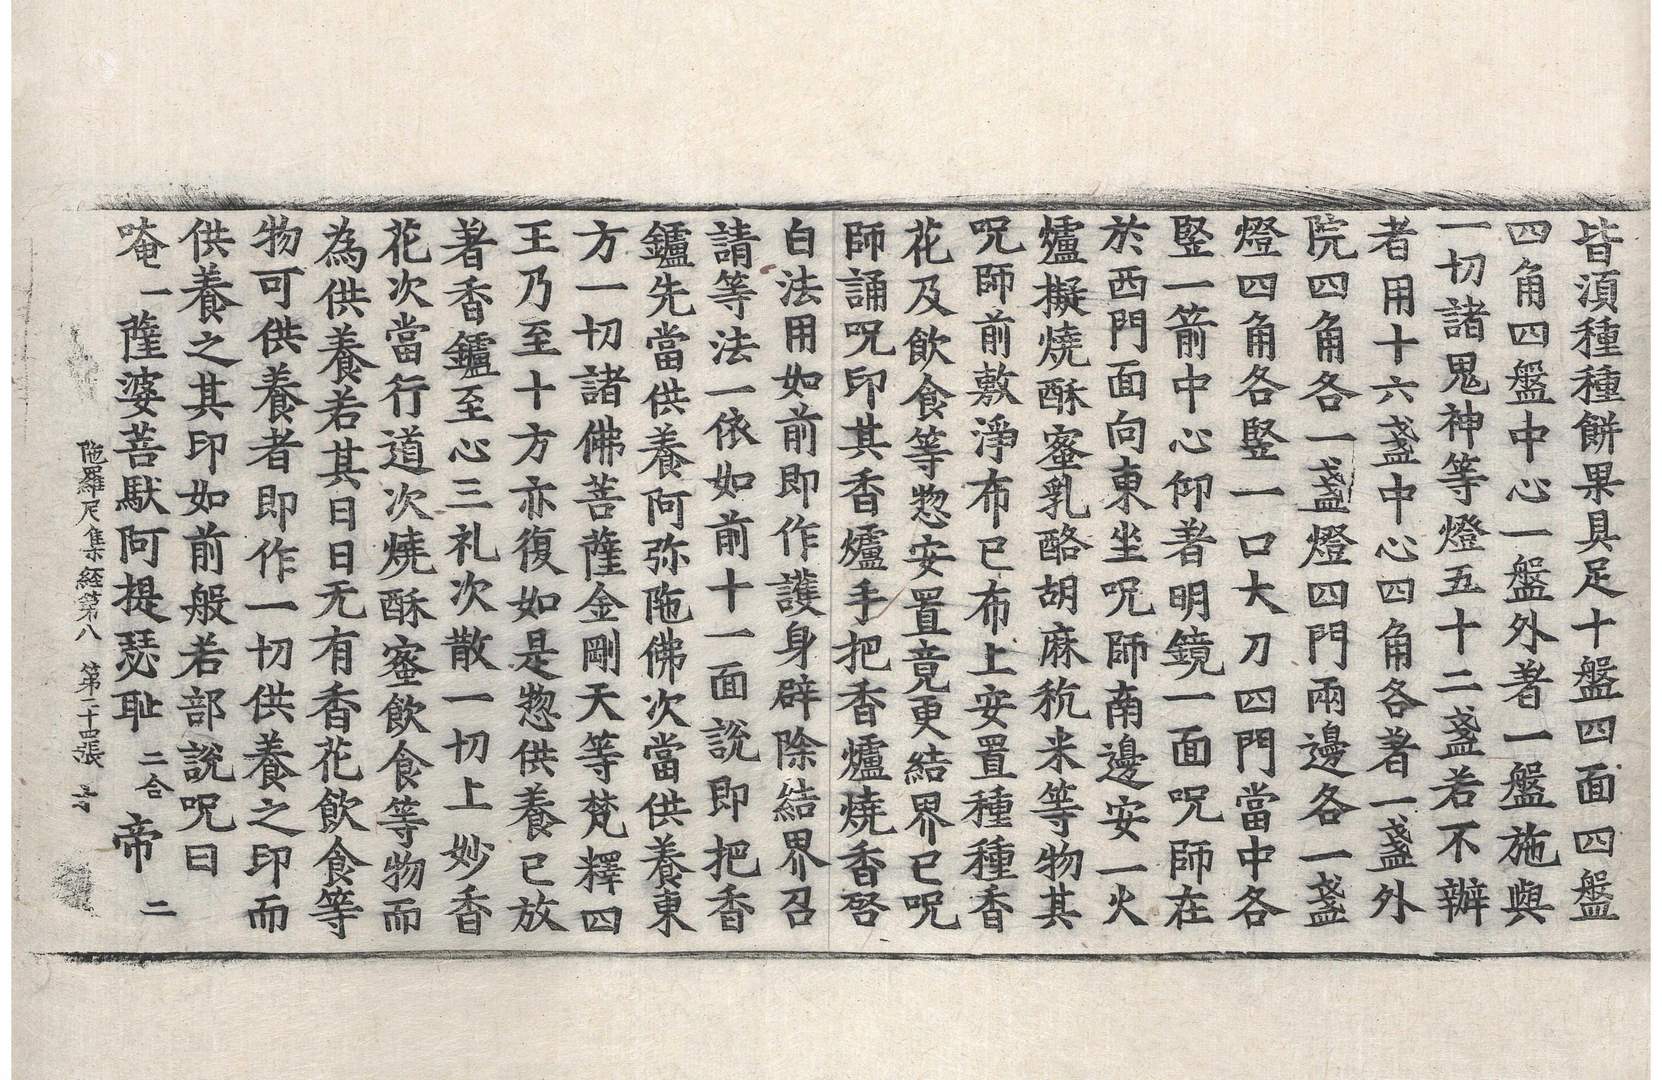 皆湏種種餅果具足十盤四面四盤
四角四盤中心一盤外著一盤施與
一切諸鬼神等燈五十二盞若不辦
者用十六盞中心四角各著一盞外
院四角各一盞燈四門兩邊各一盞
燈四角各竪一口大刀四門當中各
竪一箭中心仰著明鏡一面呪師在
於西門面向東坐呪師南邊安一火
爐擬燒酥蜜乳酪胡麻秔米等物其
呪師前敷淨布已布上安置種種香
花及飲食等惣安置竟更結界已呪
師誦呪印其香爐手把香爐燒香啓
白法用如前即作護身辟除結界召
請等法一依如前十一面說即把香
鑪先當供養阿弥陁佛次當供養東
方一切諸佛菩薩金剛天等梵釋四
王乃至十方亦復如是惣供養已放
著香鑪至心三礼次散一切上妙香
花次當行道次燒酥蜜飲食等物而
為供養若其日日无有香花飲食等
物可供養者即作一切供養之印而
供養之其印如前般若部說呪曰
唵一薩婆菩馱阿提瑟耻二合帝二
陁羅尼集経第八 第二十四張 㝵